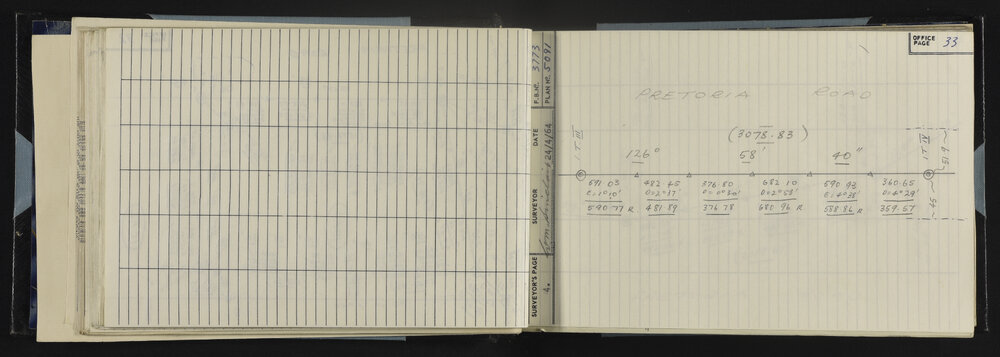 OFFICE PAGE 33
F.B. Nº. 3773
PLAN Nº. 5091
DATE 24/4/64
SURVEYOR
SURVEYOR'S PAGE 4.
PRETORIA ROAD
(3078.83)
126° 58' 40"
I.T. III
I.T. IV
51.9
45
591.03 482.45 376.80 682.10 590.93 360.65
E=1°10' D=2°37' D=0°30' D=2°53' E=4°38' D=4°29'
590.77 R. 481.89 376.78 680.96 R 588.86 R 359.57